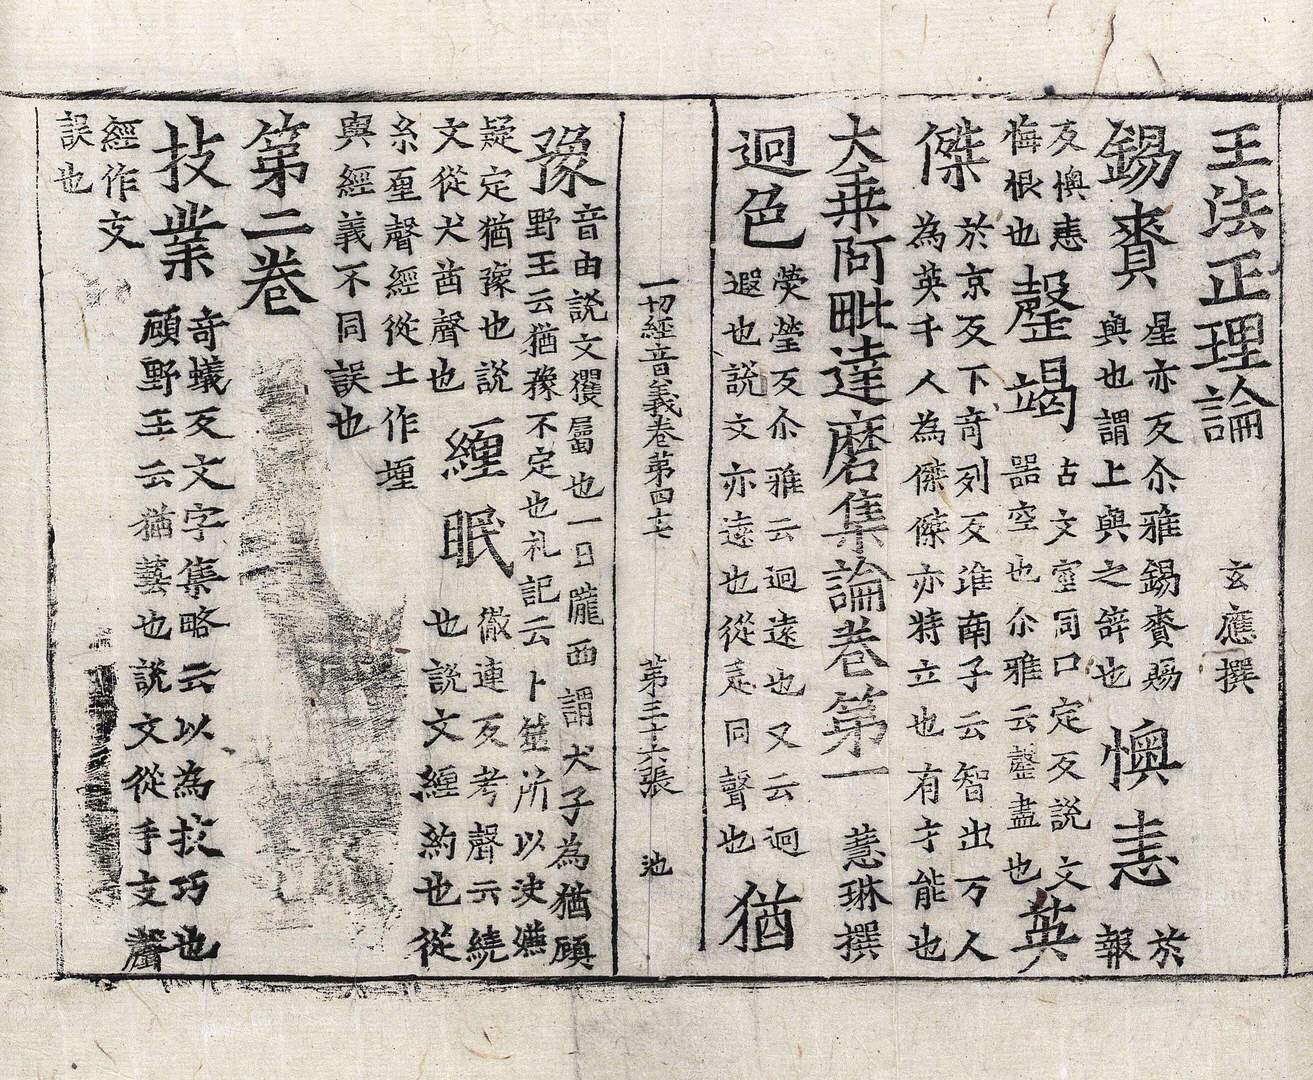 王法正理論 玄應撰
錫賚 星亦反尒雅錫賚賜
與也謂上與之辭也 懊恚 於
報
反懊恚
悔根也 罄竭 古文窒同口定反説文
器空也尒雅云罄盡也 英
傑 於京反下奇列反淮南子云智出万人
為英千人為傑傑亦特立也有才能也
大乗阿毗達磨集論卷第一 慧琳撰
迥色 熒瑩反尒雅云迥遠也又云迥
遐也説文亦遠也從辵同聲也 猶
一切經音義卷第四十七 第三十六張 池
豫 音由説文玃屬也一曰隴西謂犬子為猶顧
野王云猶豫不定也礼記云卜筮所以決嫌
疑定猶豫也説
文從犬酋聲也 纏眠 徹連反考聲云繞
也説文纏約也從
糸㕓聲經從土作㙻
與經義不同誤也
第二卷
技業 奇蟻反文字集略云以為技巧也
顧野王云猶藝也説文從手支聲
經作支
誤也